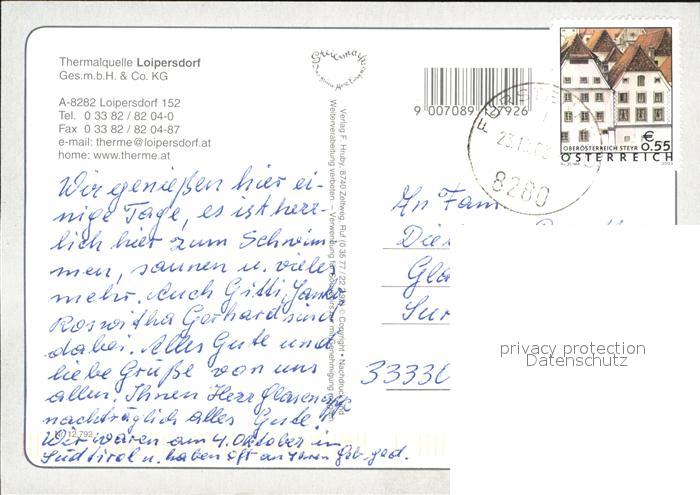 Thermalquelle Loipersdorf
Ges.m.b.H. & Co. KG
A-8282 Loipersdorf 152
Tel. 0 33 82 / 82 04-0
Fax 0 33 82 / 82 04-87
e-mail: therme@loipersdorf.at
home: www.therme.at
Steiermark
9 007089 7926
Verlag F. Hruby, 8740 Zeltweg, Ruf (0 35 77) 22 © Copyright • Nachdruck und
Weiterverarbeitung verboten. – Verwendung für
8280
€ 0.55
OBERÖSTERREICH STEYR
ÖSTERREICH
Wir genießen hier ei-
nige Tage, es ist herr-
lich hier zum Schwim
men, saunen u. vieles
mehr. Auch Gitti,
Roswitha Gerhard sind
dabei. Alles Gute und
liebe Grüße von uns
allen. Ihnen Herr
nachträglich alles Gute!
Wir waren am 4. Oktober in
Südtirol u. haben oft an Ihren Geb. ged.
12.792
An Fam
Die
Gla
Sur
3333
privacy protection
Datenschutz